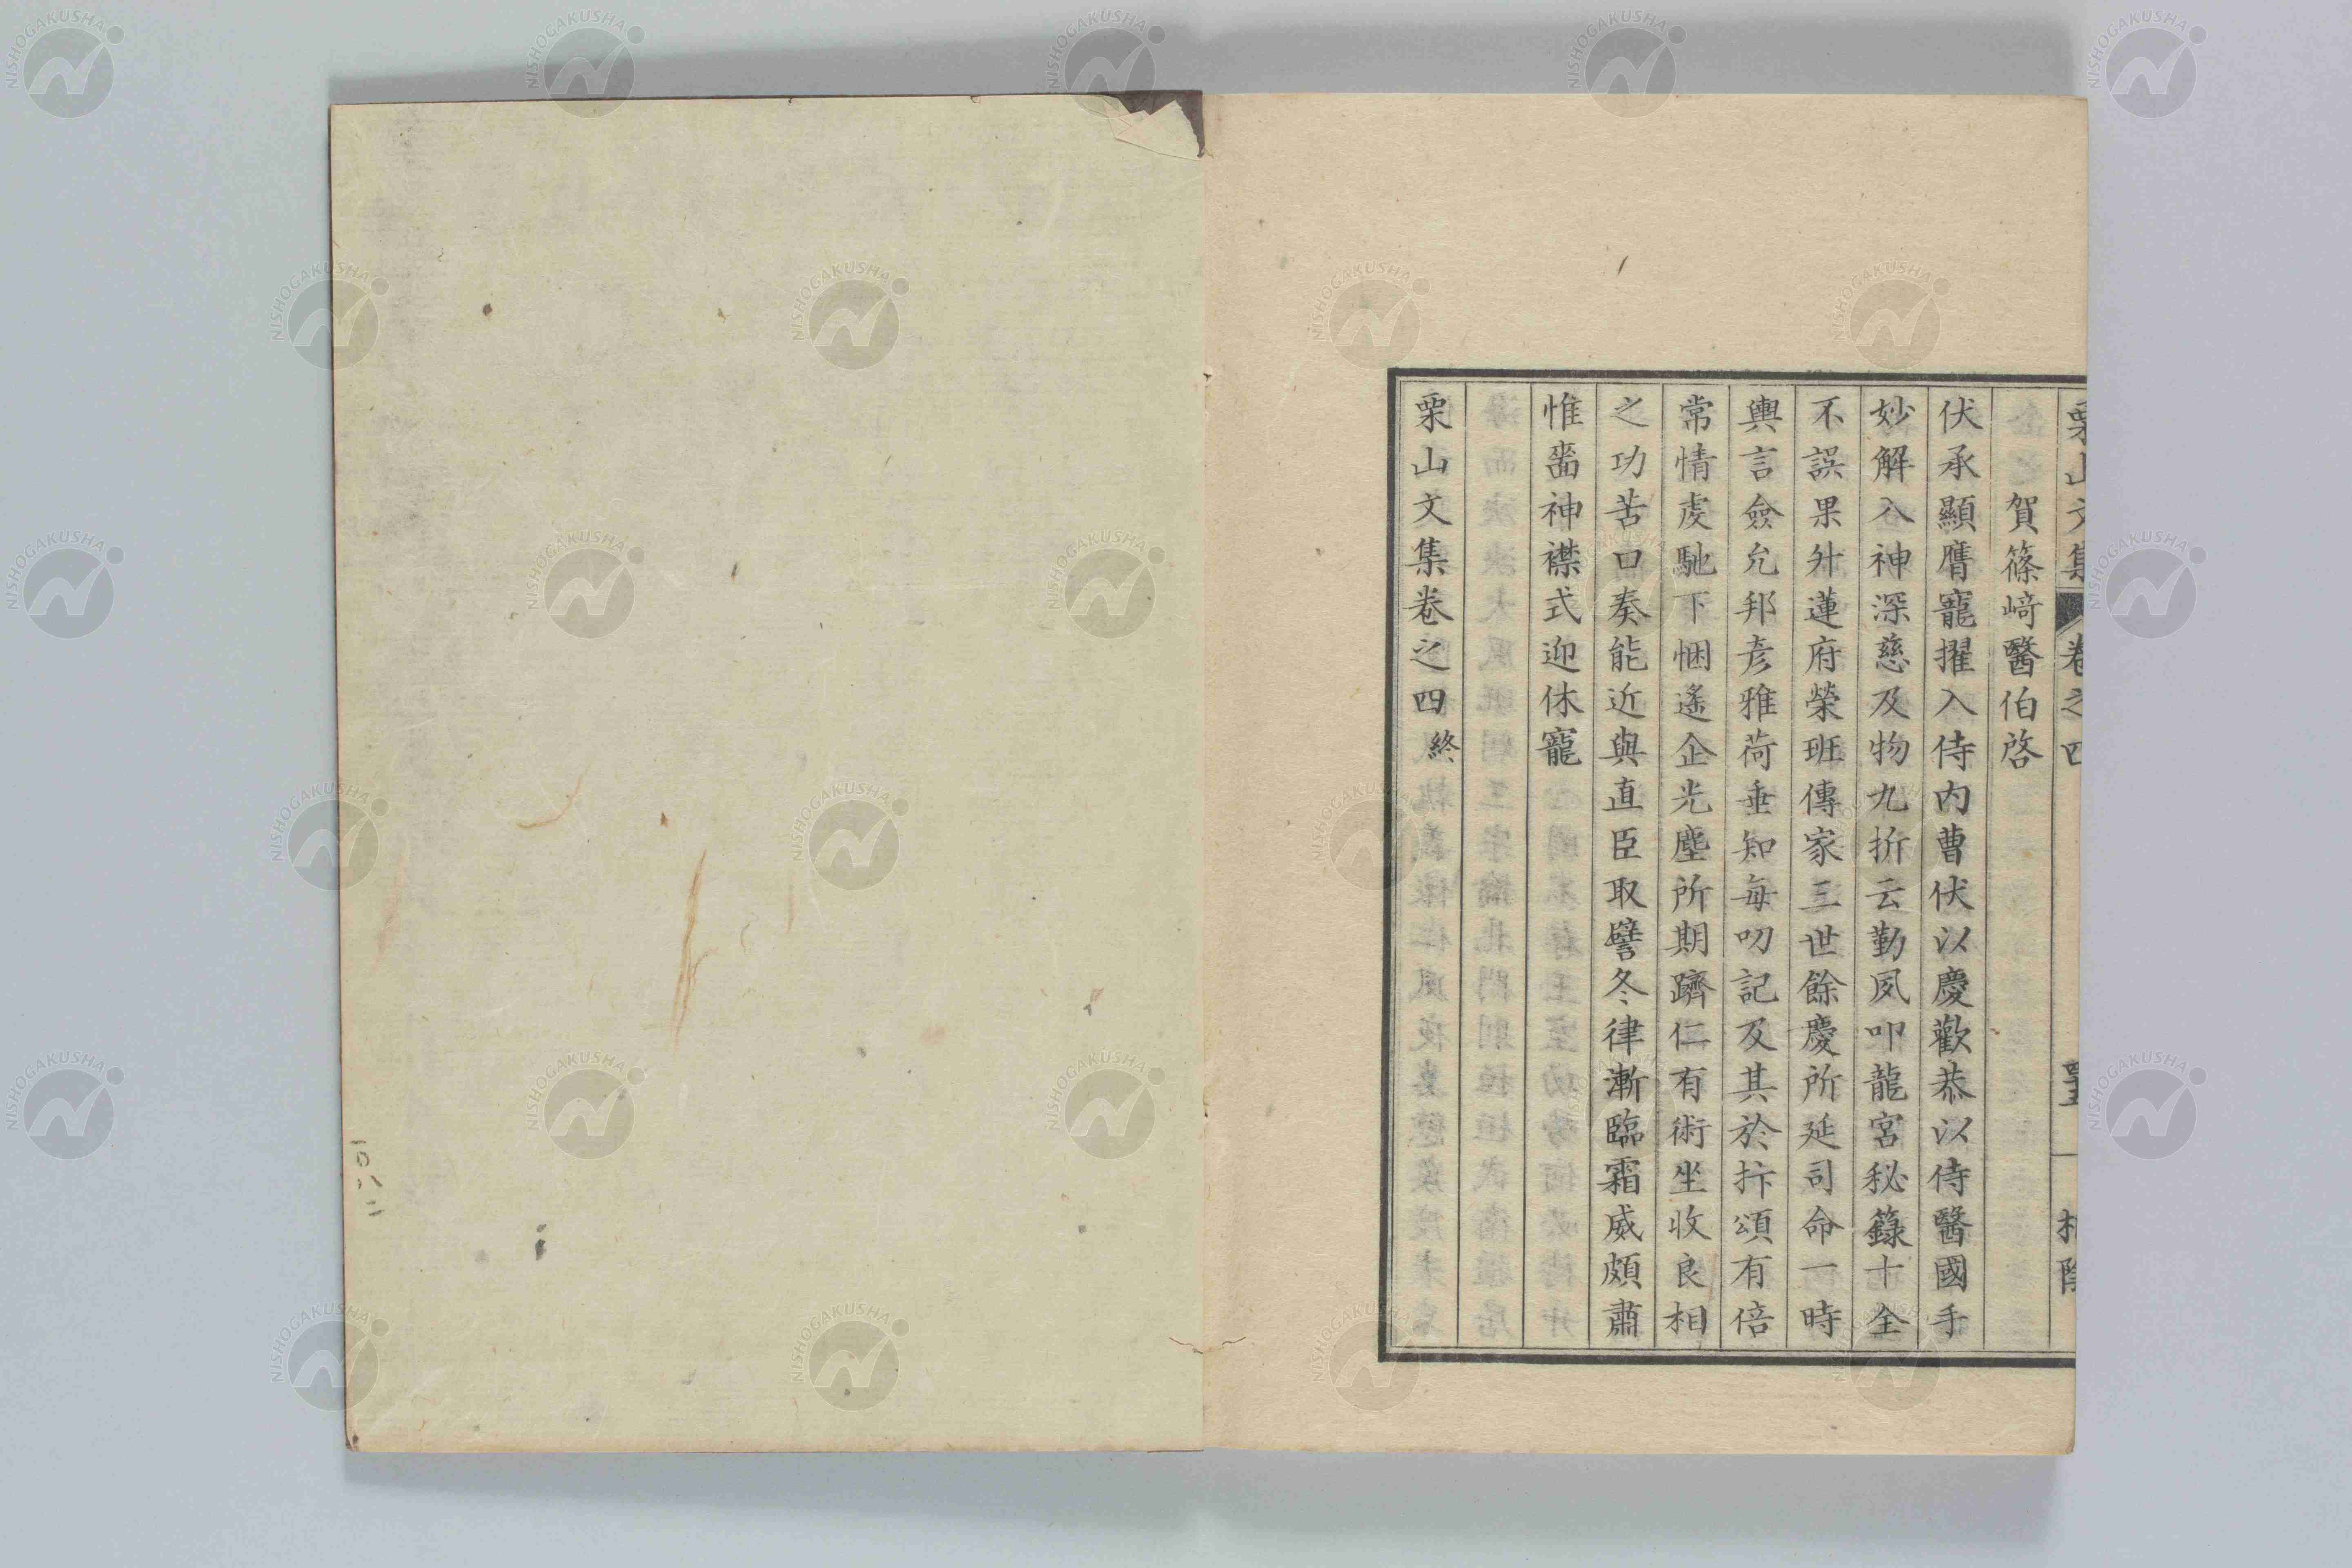 賀篠﨑醫伯啓
伏承顯膺寵擢入侍内曹伏以慶歡恭以侍醫國手
妙解入神深慈及物九折云勤夙叩龍宮秘籙十全
不誤果舛蓮府榮班傳家三世餘慶所延司命一時
輿言僉允邦彦雅荷垂知毎叨記及其於抃頌有倍
常情虔馳下悃遙企光塵所期躋仁有術坐收良相
之功苦口奏能近與直臣取譬冬律漸臨霜威頗肅
惟嗇神襟式迎休寵
栗山文集卷之四終
一〇八二
NISHOGAKUSHA